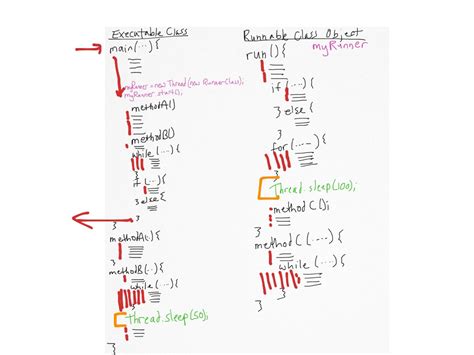 Executable Class
main(...) {
myRunner = new Thread (new RunnerClass);
myRunner.start();
methodA()
methodB()
while(...) {
}
if (...) {
} else {
}
}
methodA() {
}
methodB(...) {
while(...) {
}
Thread.sleep(50);
}
Runnable Class Object
myRunner
run() {
if (...) {
} else {
}
for(...) {
}
Thread.sleep(100);
method C();
}
method C(...) {
while(...) {
}
}